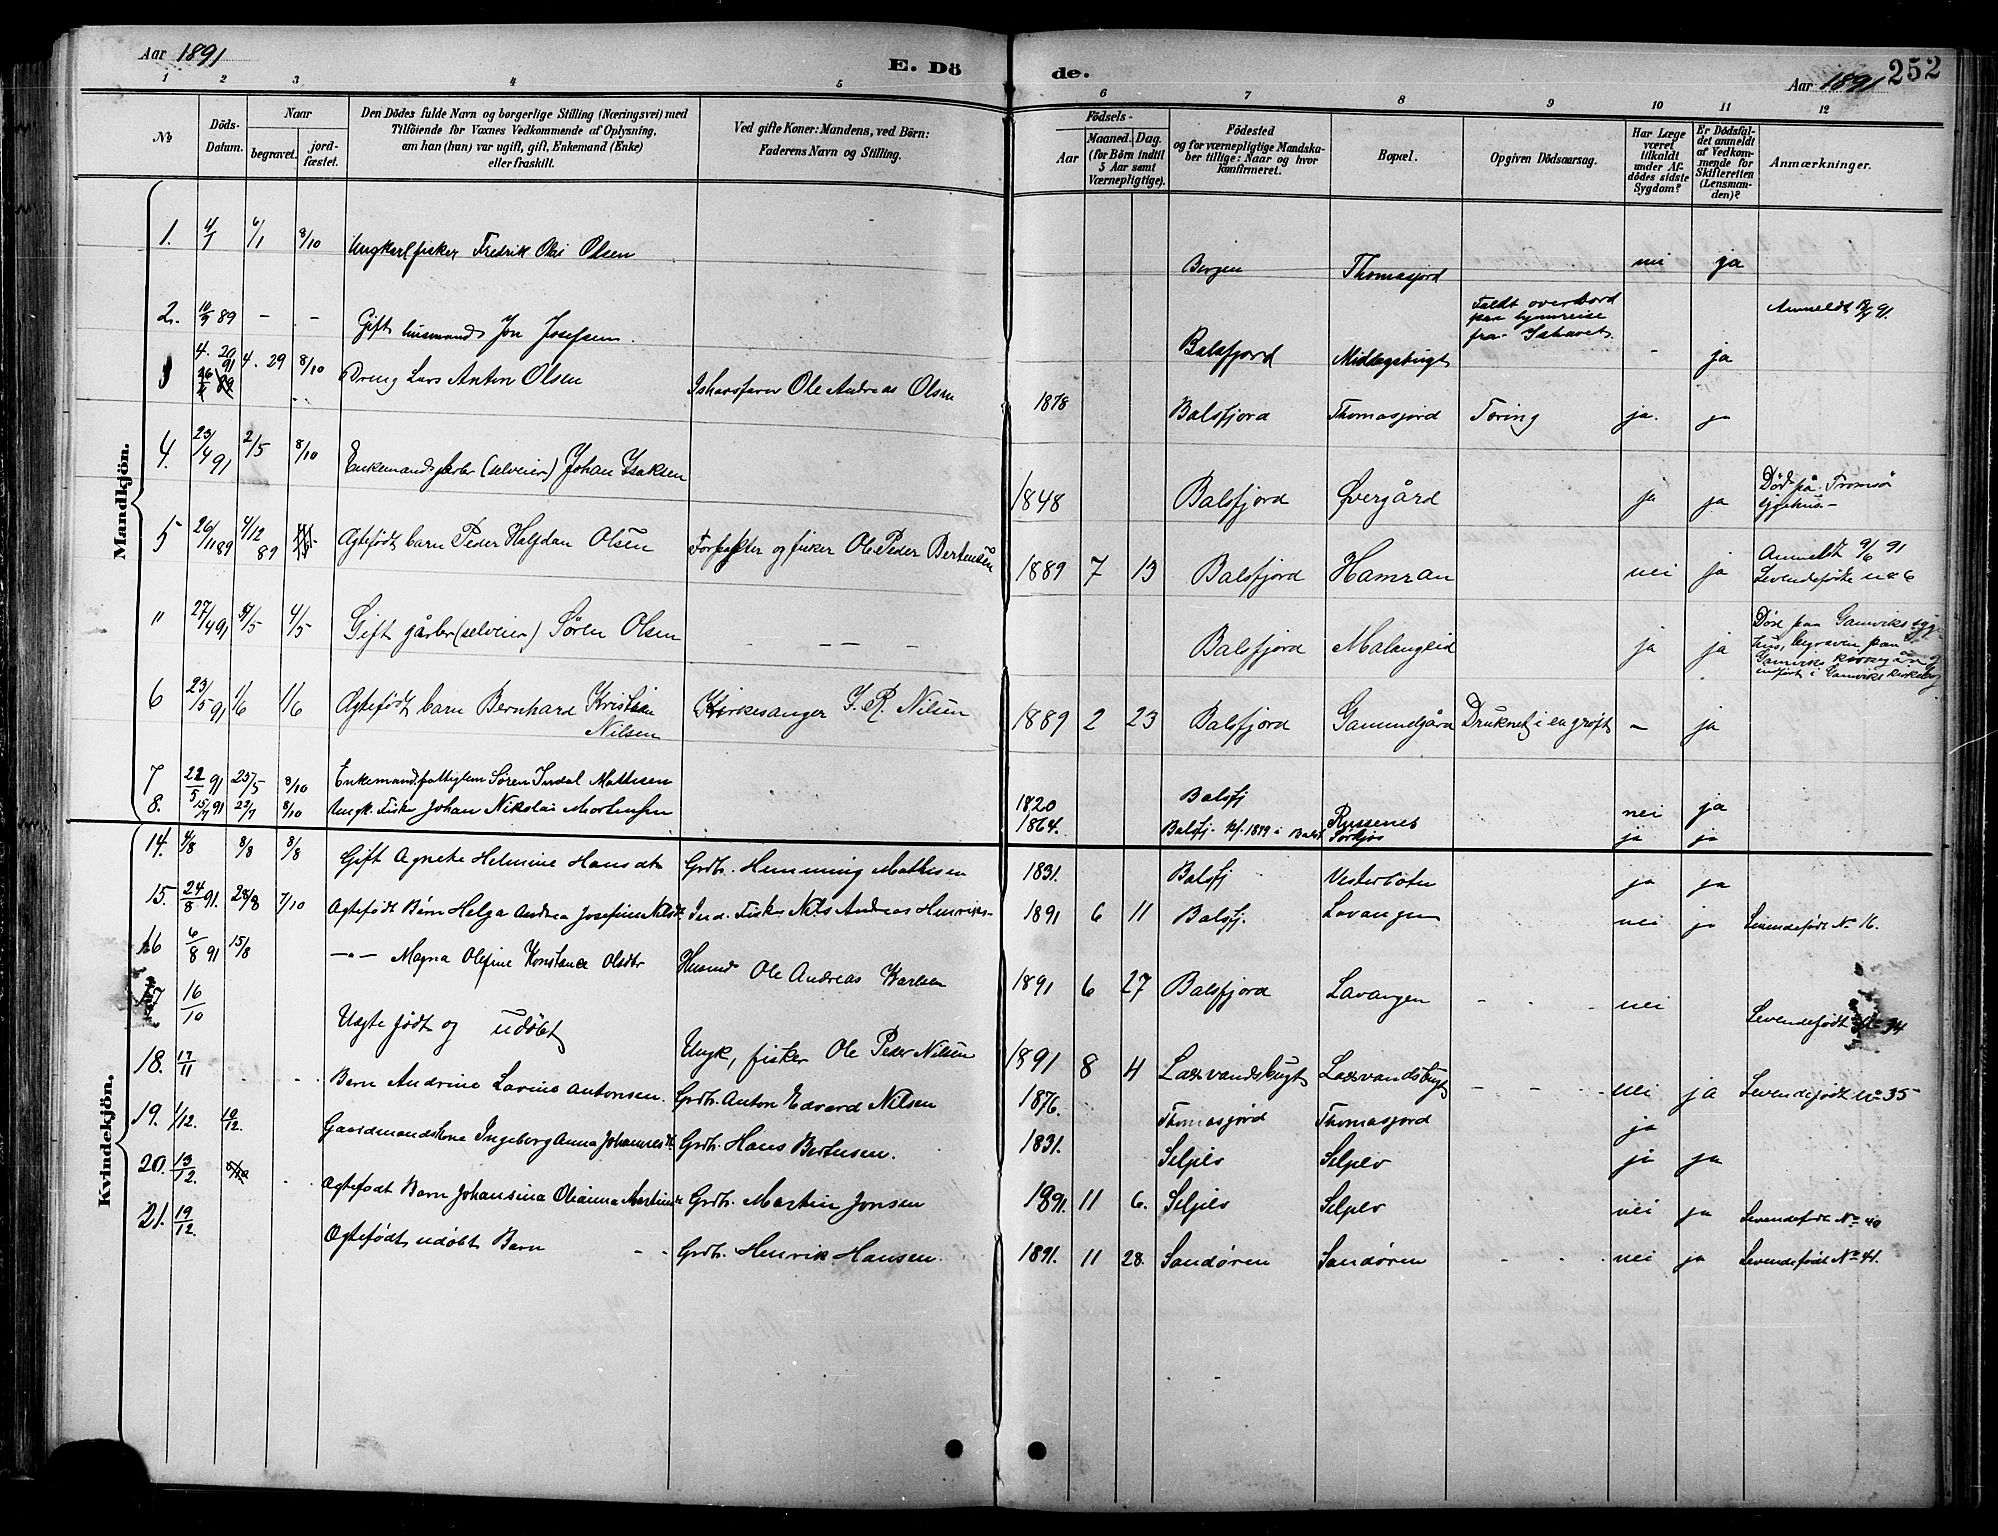 Aar 1891
E. Dö
de.
Aar 1891
252
1 2 3 4 5 6 7 8 9 10 11 12
No
Döds-
Datum.
Naar
begravet.
jord-
fæstet.
Den Dödes fulde Navn og borgerlige Stilling (Næringsvei) med
Tilföiende for Voxnes Vedkommende af Oplysning,
om han (hun) var ugift, gift, Enkemand (Enke)
eller fraskilt.
Ved gifte Koner: Mandens, ved Börn:
Faderens Navn og Stilling.
Födsels-
Aar
Maaned. Dag.
(for Börn indtil
5 Aar samt
Værnepligtige).
Födested
og for værnepligtige Mandska-
ber tillige: Naar og hvor
konfirmeret.
Bopæl.
Opgiven Dödsaarsag.
Har Læge
været
tilkaldt
under Af-
dödes sidste
Sygdom?
Er Dödsfal-
det anmeldt
af Vedkom-
mende for
Skifteretten
(Lensman-
den)?
Anmærkninger.
Mandkjön.
1. 4/1 6/1 8/10 Ungkarl fisker Fredrik Olsen Bergen Thomasjord nei ja
2. 10/9 89 - - Gift husmand Jon Josefsen. Balsfjord Middagsbugt Faldt overbord
paa hjemreise
fra Ishavet. - ja Anmeldt 91.
4. 29 8/10 Dreng Lars Anton Olsen Ishavsfarer Ole Andreas Olsen 1878 Balsfjord Thomasjord Tæring ja. ja
4. 23/4 91 2/5 8/10 Enkemand gårbr (selveier) Johan Isaksen 1848 Balsfjord Øvergård ja ja Död på Tromsø
sygehus-
5 26/11 89 4/12 89 Ægtefødt barn Peder Halfdan Olsen Forpagter og fisker Ole Peder Bertensen 1889 7 13 Balsfjord Hamran nei ja Anmeldt 9/6 91
Levendefødte no 6
" 27/4 91 5/5 4/5 Gift gårbr (selveier) Sören Olsen - - - Balsfjord Malangseid ja ja Död paa Gamviks syge
hus, begraven paa
Gamviks kirkegård og
indført i Gamviks kirkebog
6 23/5 91 1/6 1/6 Ægtefødt barn Bernhard Kristian
Nilsen Kirkesanger J. R. Nilsen 1889 2 23 Balsfjord Gammelgård Druknet i en grøft - ja
7 22/5 91 23/5 8/10 Enkemand fattiglem Sören Indal Mathisen 1820 Balsfj Russenes nei ja
8. 15/7 91 23/7 8/10 Ungk. Fisker Johan Nikolai Mortensen 1864. Balsfj. Kf. 1879 i Balsf. ja ja
Kvindekjön.
14. 4/8 8/8 8/8 Gift Agnete Helmine Hansdt Grdbr. Hemming Mathisen 1831. Balsfj Vesterbotn ja ja
15. 24/8 91. 28/8 7/10 Ægtefødt Børn Helga Andrea Josefine Nilsdt Ind. Fisker Nils Andreas Henriks- 1891 6 11 Balsfj. Lavangen nei ja Levendefødt No 16.
16 6/8 91 15/8 -"- Magna Olefine Konstance Olsdtr Husmd Ole Andreas Karlsen 1891 6 27 Balsfjord Lavangen - - nei
17 16/10 Uægte født og udøbt Ungk, fisker Ole Peder Nilsen 1891 8 4 Laxvandsbugt Laxvandsbugt - - nei ja Levendefødt No 34
18. 17/11 Barn Andrine Lavine Antonsen. Grdbr. Anton Edvard Nilsen 1876. Thomasjord Thomasjord ja Levendefødt No 35
19. 1/12. 10/12. Gaardmandskone Ingeborg Anna Johannesdt. Grdbr. Hans Bertensen. 1831. Seljelv Seljelv ja ja
20. 13/12. Ægtefødt Barn Johansina Olianna Martins Grdbr. Martin Jonsen 1891. 11 6. Seljelv Seljelv nei ja Levendefødt No 40
21. 19/12. Ægtefødt udøbt Barn Grdbr. Henrik Hansen. 1891. 11 28. Sandøren Sandøren - - nei ja Levendefødt No 41.